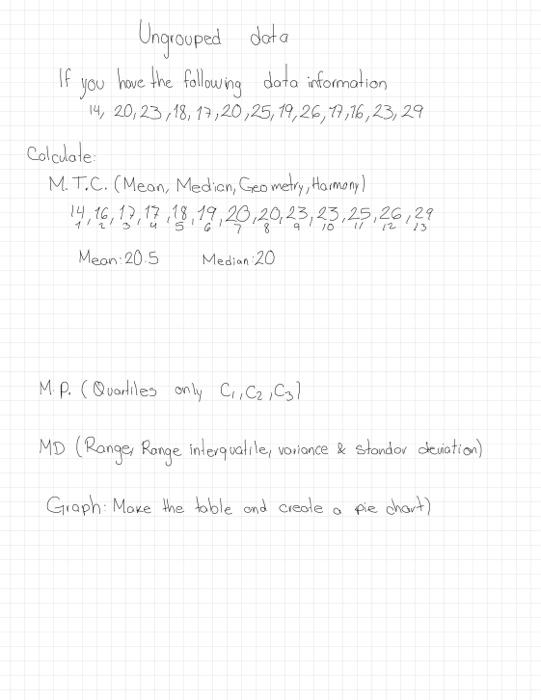 Ungrouped data
If you have the following data information
14, 20, 23, 18, 17, 20, 25, 19, 26, 17, 16, 23, 29
Calculate:
M.T.C. (Mean, Median, Geometry, Harmony)
14, 16, 17, 17, 18, 19, 20, 20, 23, 23, 25, 26, 29
1 2 3 4 5 6 7 8 9 10 11 12 13
Mean: 20.5 Median: 20
M.P. (Quartiles only C1, C2, C3)
MD (Range, Range interquatile, variance & standar deviation)
Graph: Make the table and create a pie chart)